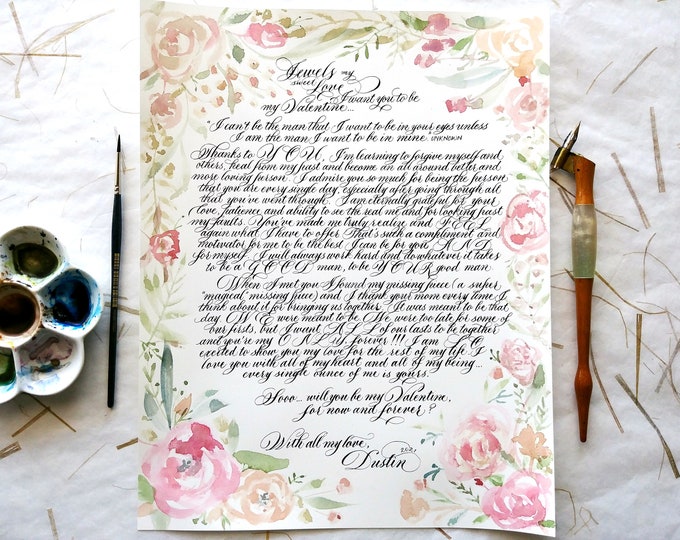 Jewels my
sweet Love
I want you to be
my Valentine...
"I can't be the man that I want to be in your eyes unless
I am the man I want to be in mine. UNKNOWN
Thanks to YOU, I'm learning to forgive myself and
others, heal from my past and become an all around better and
more loving person. I admire you so much for being the person
that you are every single day, especially after going through all
that you've went through. I am eternally grateful for your
love, patience and ability to see the real me and for looking past
my faults. You've made me truly realize and FEEL
again what I have to offer. That's such a compliment and
motivator for me to be the best I can be for you AND
for myself. I will always work hard and do whatever it takes
to be a GOOD man, to be YOUR good man.
When I met you I found my missing piece (a super
"magical" missing piece) and I thank you more every time I
think about it for bringing us together. It was meant to be that
day. WE were meant to be. We were too late for some of
our firsts, but I want ALL of our lasts to be together
and you're my ONLY, forever!!! I am SO
excited to show you my love for the rest of my life. I
love you with all of my heart and all of my being...
every single ounce of me is yours.
Sooo... will you be my Valentine,
for now and forever?
With all my love,
Dustin 2021